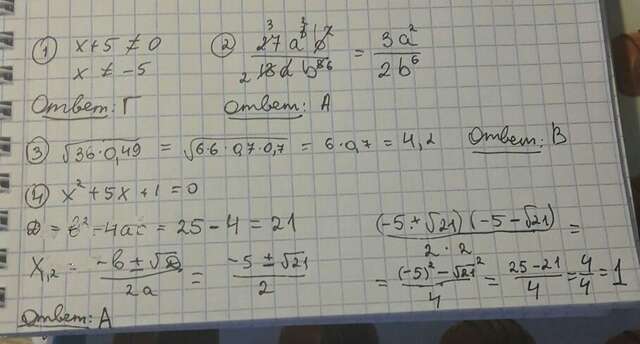 ① x+5 ≠ 0
x ≠ -5
Ответ: Г
② 27 a³ b² / 18 a b⁸ = 3a² / 2b⁶
Ответ: А
③ √36·0,49 = √6·6·0,7·0,7 = 6·0,7 = 4,2 Ответ: В
④ x² + 5x + 1 = 0
D = b² - 4ac = 25 - 4 = 21
X₁,₂ = -b ± √D / 2a = -5 ± √21 / 2
(-5 + √21)(-5 - √21) / 2·2 =
= (-5)² - √21² / 4 = 25 - 21 / 4 = 4/4 = 1
Ответ: А